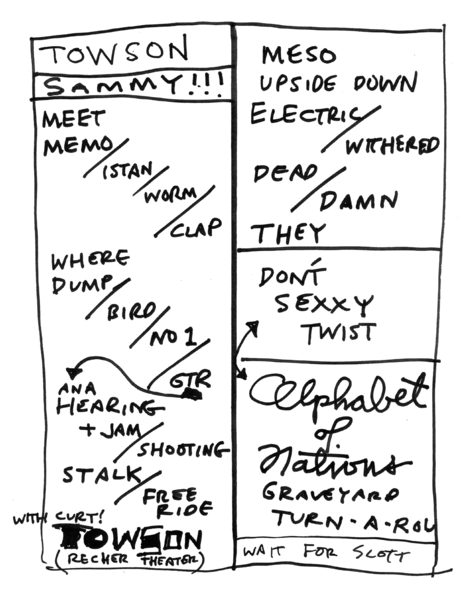 TOWSON
SAMMY!!!
MEET
MEMO/
ISTAN/
WORM/
CLAP
WHERE
DUMP/
BIRD/
NO 1/
GTR
ANA
HEARING
+ JAM/
SHOOTING
STALK/
FREE
RIDE
WITH CURT!
TOWSON
(RECHER THEATER)
MESO
UPSIDE DOWN
ELECTRIC/
WITHERED
DEAD/
DAMN
THEY
DON'T
SEXXY
TWIST
Alphabet
of
Nations
GRAVEYARD
TURN-A-ROU
WAIT FOR SCOTT